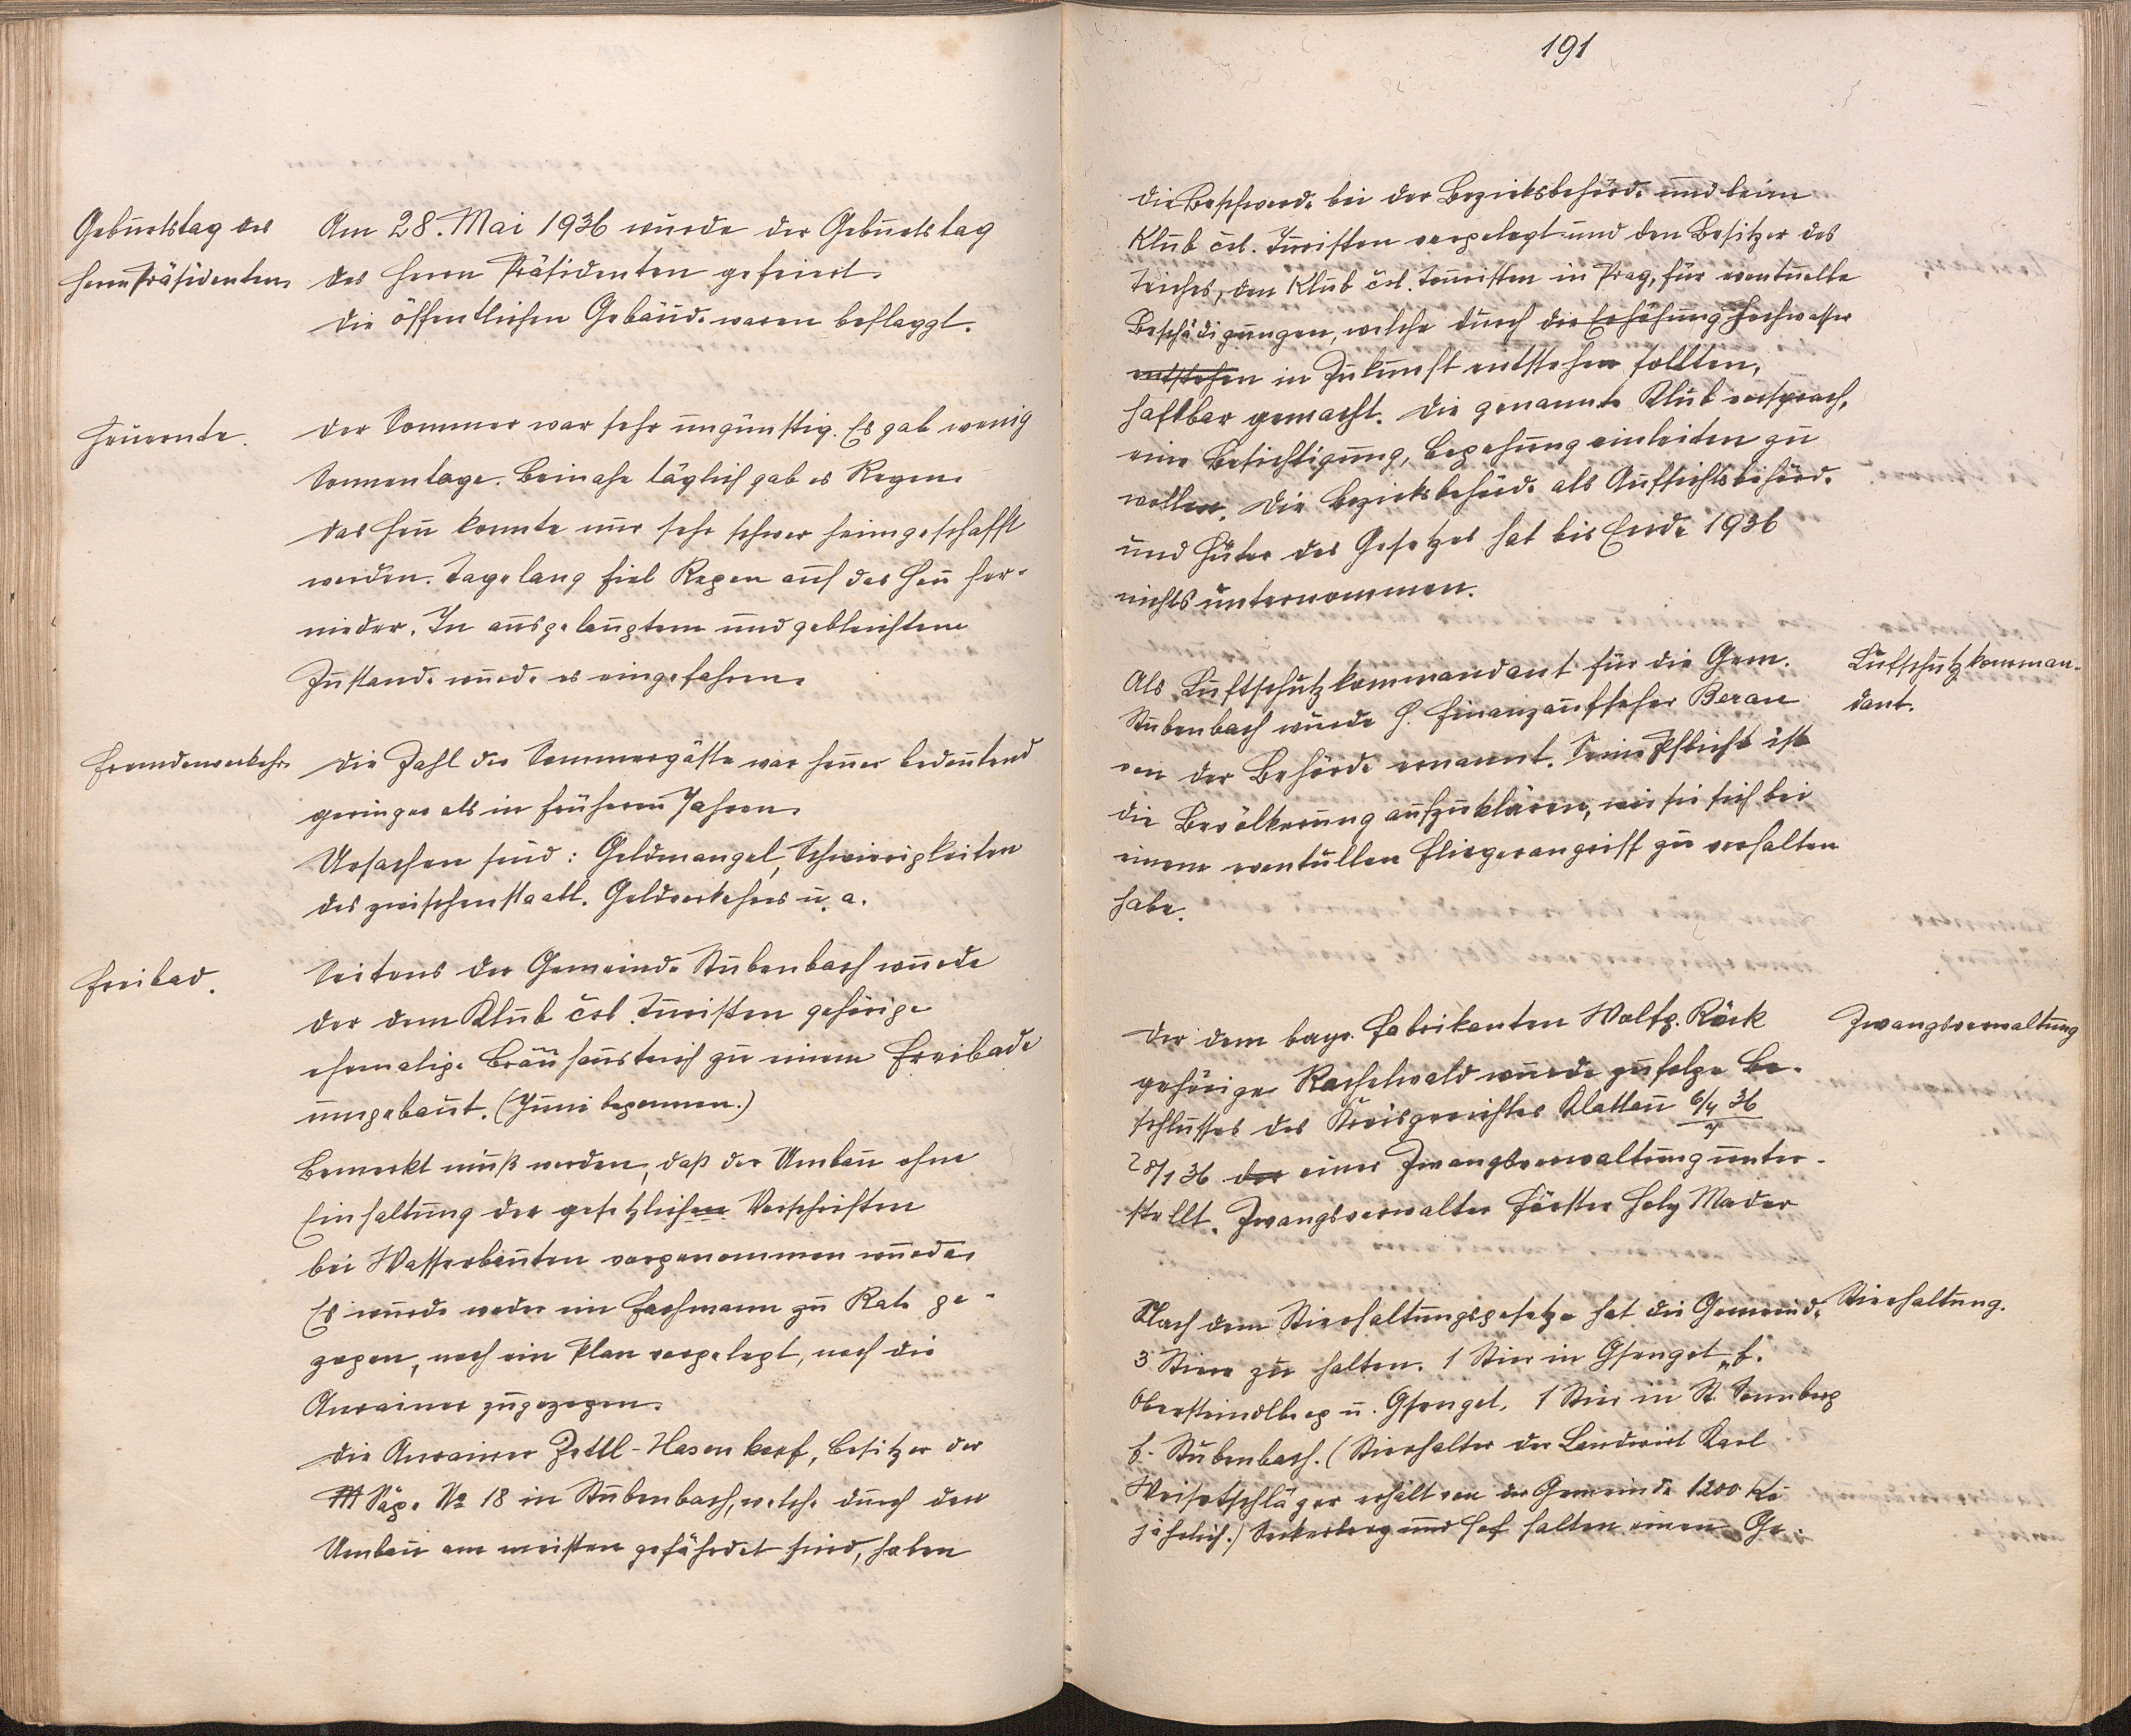 Geburtstag des
Herrn Präsidenten.
Am 28. Mai 1936 wurde der Geburtstag
des Herrn Präsidenten gefeiert.
Die öffentlichen Gebäude waren beflaggt.
Heuernte.
Der Sommer war sehr ungünstig. Es gab wenig
Sonnentage. Beinahe täglich gab es Regen.
Das Heu konnte nur sehr schwer heimgeschafft
werden. Tagelang fiel Regen auf das Heu her-
nieder. In ausgelaugtem und gebleichtem
Zustande wurde es eingefahren.
Fremdenverkehr.
Die Zahl der Sommergäste war heuer bedeutend
geringer als in früheren Jahren.
Ursachen sind: Geldmangel, Schwierigkeiten
des zwischenstaatl. Geldverkehres u. a.
Freibad.
Seitens der Gemeinde Stubenbach wurde
der dem Klub čsl. Turisten gehörige
ehemalige Bräuhausteich zu einem Freibade
umgebaut. (Juni begonnen.)
Bemerkt muß werden, daß der Umbau ohne
Einhaltung der gesetzlichen Vorschriften
bei Wasserbauten vorgenommen wurde.
Es wurde weder ein Fachmann zu Rate ge-
zogen, noch ein Plan vorgelegt, noch die
Anrainer zugezogen.
Die Anrainer Zettl-Hasenkopf, Besitzer der
Säge No 18 in Stubenbach, welche durch den
Umbau am meisten gefährdet sind, haben
191
die Beschwerde bei der Bezirksbehörde und beim
Klub čsl. Turisten vorgelegt und den Besitzer des
Teiches, den Klub čsl. Touristen in Prag, für eventuelle
Beschädigungen, welche durch die Erhöhung Hochwasser
entstehen in Zukunft entstehen sollten,
haftbar gemacht. Die genannte Klub versprach,
eine Besichtigung, Begehung einleiten zu
wollen. Die Bezirksbehörde als Aufsichtsbehörde
und Hüter des Gesetzes hat bis Ende 1936
nichts unternommen.
Luftschutzkomman-
dant.
Als Luftschutzkommandant für die Gem.
Stubenbach wurde H. Finanzaufseher Beran
von der Behörde ernannt. Seine Pflicht ist
die Bevölkerung aufzuklären, wie sie sich bei
einem eventuellen Fliegerangriff zu verhalten
habe.
Zwangsverwaltung
Der dem bayr. Fabrikanten Wolfg. Röck
gehörige Rachelwald wurde zufolge Be-
schlusses des Kreisgerichtes Klattau 6/4 36
28/1 36 der einer Zwangsverwaltung unter-
stellt. Zwangsverwalter Förster Mader
Stierhaltung.
Nach dem Stierhaltungsgesetze hat die Gemeinde
3 Stiere zu halten. 1 Stier in Gsenget f.
Obersteindlberg u. Gsenget. 1 Stier in St. Sonnberg
f. Stubenbach. (Stierhalter der Landwirt Karl
Weishäupl erhält von der Gemeinde 1200 Kč
jährlich.) Seckerberg und Hof halten einen Ge-